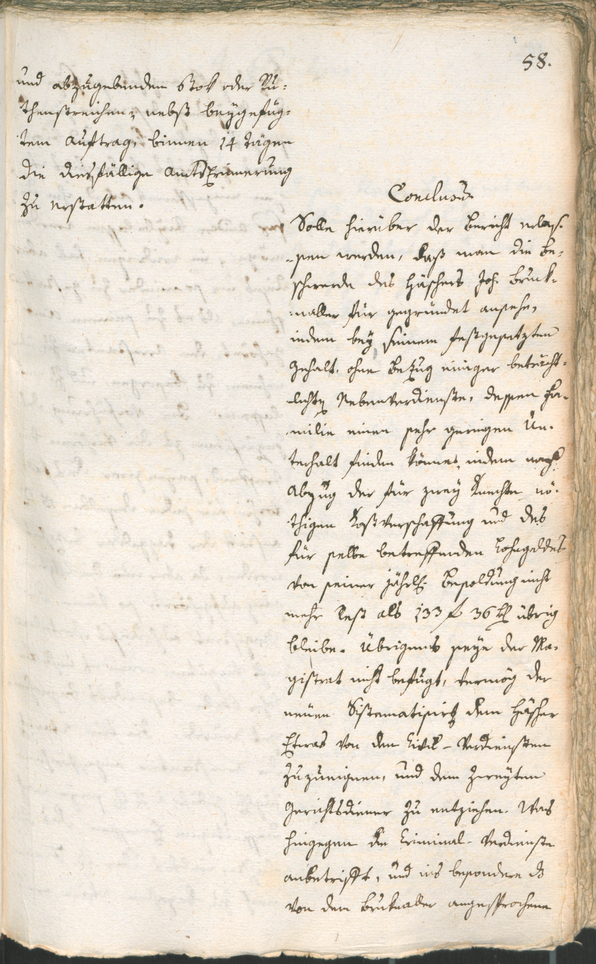 58.
und abzugebenden Stok oder Ru-
thenstreichen, nebst beygefüg-
tem Auftrag, binnen 14 Tägen
die diesfällige Amts Erinnerung
zu erstatten.
Conclusum
Solle hierüber der Bericht erlas-
sen werden, daß man die Be-
schwerde des Häschers Joh. Bruk-
maller für gegründet ansehe,
indem bey seinem festgesetzten
Gehalt, ohne Bezug einiger beträcht-
lichen Nebenverdienste, dessen Fa-
milie einen sehr geringen Un-
terhalt finden könne, indem nach
Abzug der für zwey Knechte nö-
thigen Kostverschaffung und des
für selbe betreffenden Lohngeldes
von seiner jährl. Besoldung nicht
mehr Rest als 133 f 36 kr übrig
bleibe. Übrigens seye der Ma-
gistrat nicht befugt, vermög der
neuen Sistematisirung dem Häscher
Etwas von den Civil-Verdiensten
zuzueignen, und dem zweyten
Gerichtsdiener zu entziehen. Was
hingegen die Criminal-Verdienste
anbetrifft, und ins besondere die
von dem Brukmaller angesprochene